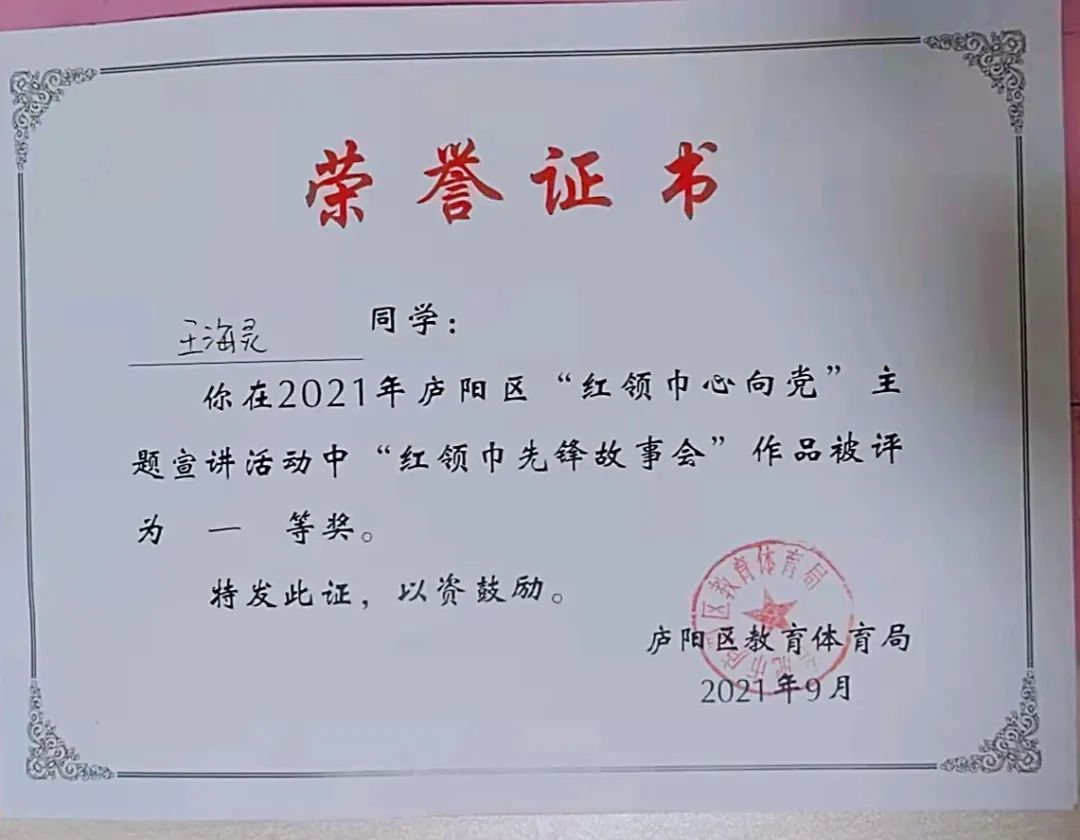 荣誉证书
王海灵 同学：
你在2021年庐阳区“红领巾心向党”主
题宣讲活动中“红领巾先锋故事会”作品被评
为 一 等奖。
特发此证，以资鼓励。
庐阳区教育体育局
2021年9月
区教育体育局